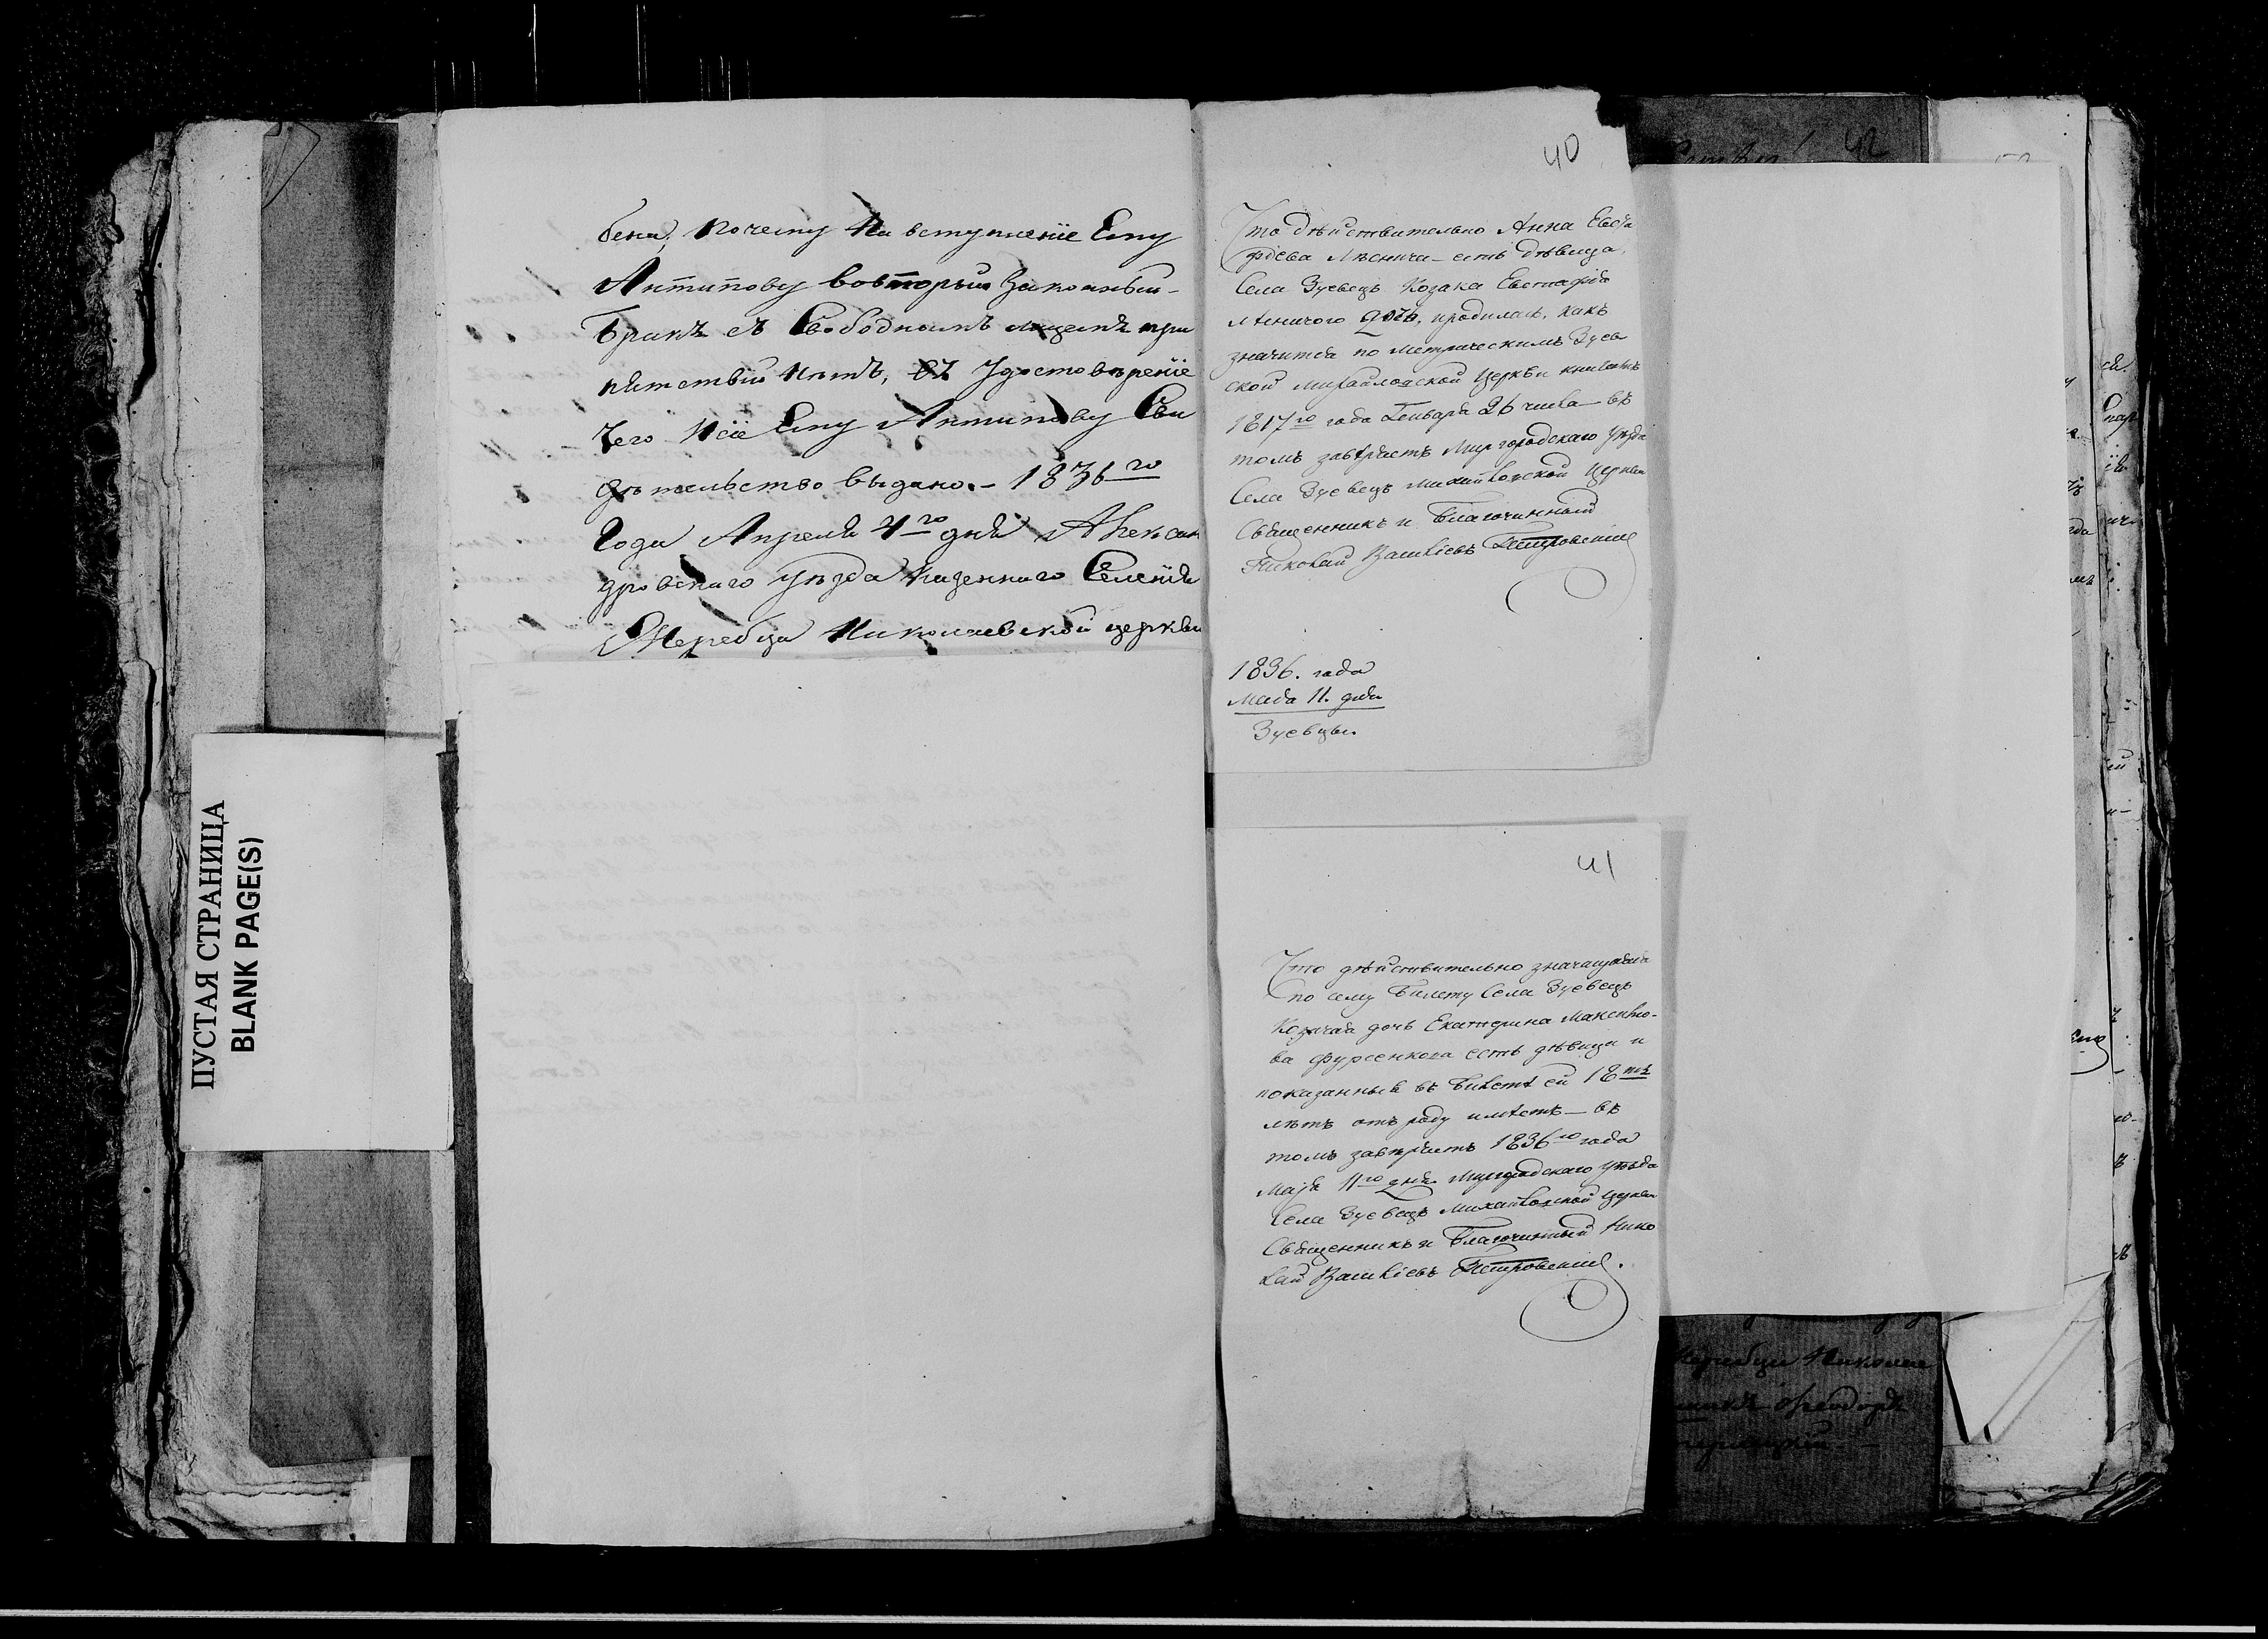 бена, почему на вступление Ему
Антипову вовторый Законный
Бракъ съ Свободнымъ лицемъ при
пятствия нѣтъ, въ Удостовѣреніе
чего Ксіе Ему Антипову Сви
дѣтельство выдано. – 1836го
Года Апреля 4го дня Алексан
дровскаго уѣзда Казеннаго Селенія
Жеребца Николаевской церкви
ПУСТАЯ СТРАНИЦА
BLANK PAGE(S)
40
Что дѣйствительно Анна Евста
фіева Лѣснича – есть дѣвица,
Села Зуевецъ Козака Евстафія
Лѣсничого дочь, и родилась, какъ
значится по метрическимъ Зуев
ской Михайловской Церкви книгамъ
1817го года Генваря 26 числа – въ
томъ завѣряетъ Миргородскаго уѣзда
Села Зуевецъ Михайловской Церкви
Священникъ и Благочинный
Николай Василіевъ Петровскій
1836. года
Маія 11. дня
Зуевцы.
41
Что дѣйствительно значащаяся
по сему Билету Села Зуевецъ
Козачая дочь Екатерина Максимо-
ва Фурсенкова есть дѣвица и
показанныя въ Билетѣ ей 18ть
лѣтъ отъ роду имѣетъ – въ
томъ завѣряетъ 1836го года
Маія 11го дня Миргородскаго уѣзда
Села Зуевецъ Михайловской Церкви
Священникъ и Благочинный Нико
лай Василіевъ Петровскій.
42
Жеребца Николае
Феодоръ